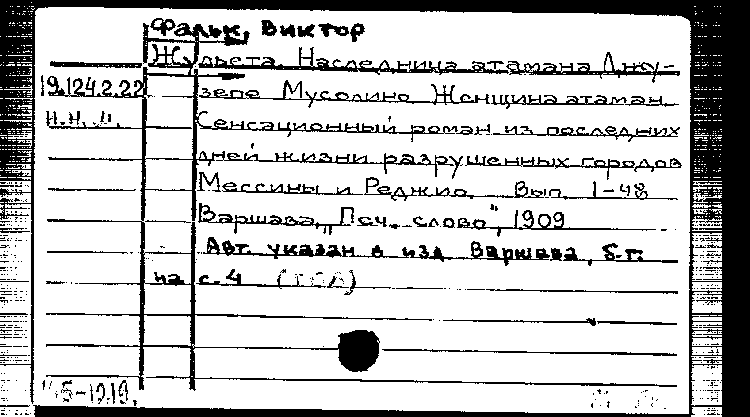 Фальк, Виктор
Жульета. Наследница атамана Джу-
19.124.2.22 зепе Мусолино Женщина атаман.
н.н.м. Сенсационный роман из последних
дней жизни разрушенных городов
Мессины и Реджио. Вып. 1-48
Варшава, „Печ. слово“, 1909
Авт. указан в изд. Варшава, б.г.
на с. 4